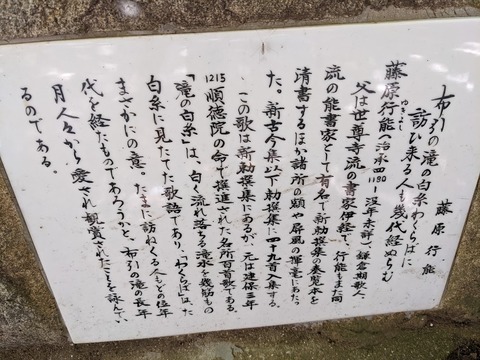 布引の滝の白糸わくらばに 藤原行能
訪ひ来る人も幾代経ぬらむ
藤原行能（治承四1180ー没年未詳）、鎌倉期歌人。
ゆきよし
父は世尊寺流の書家伊経で、行能もまた同
流の能書家として有名で、新勅撰集の奏覧本を
清書するほか諸所の額や屏風の揮毫にあたっ
た。新古今集以下勅撰集に四十九首入集する。
この歌は新勅撰集にあるが、元は建保三年
1215 順徳院の命で撰進された名所百首歌である。
「滝の白糸」は、白く流れ落ちる滝水を幾筋もの
白糸に見たてた歌語であり、「わくらば」は、た
まさかにの意。たまに訪ねくる人もどの位年
代を経たものであろうかと、布引の滝の長年
月人々から愛され観賞されたことを詠んでい
るのである。